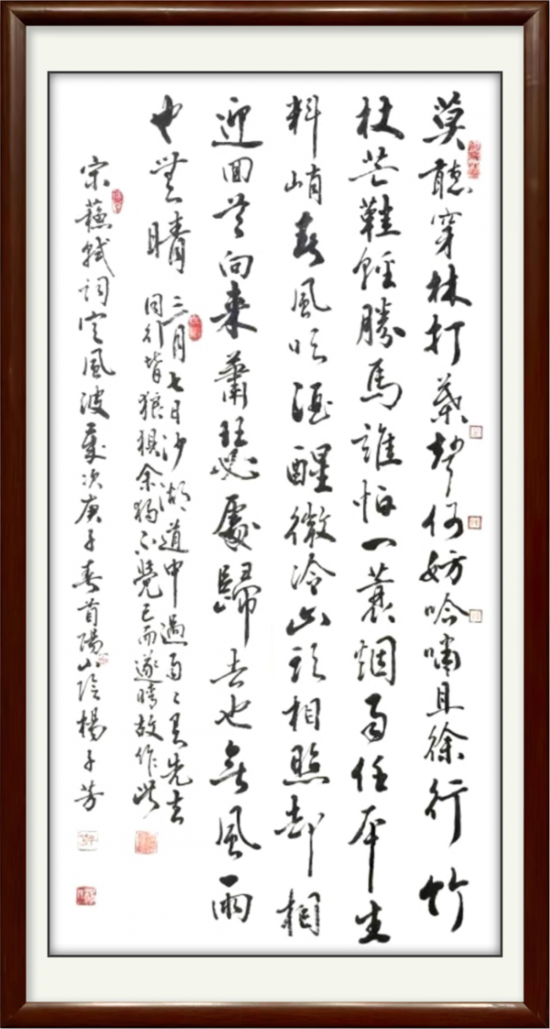 莫聽穿林打葉聲何妨吟嘯且徐行竹
杖芒鞋輕勝馬誰怕一蓑烟雨任平生
料峭春風吹酒醒微冷山頭相照却相
迎回首向來蕭瑟處歸去也無風雨
也無晴
三月七日沙湖道中遇雨雨具先去
同行皆狼狽余獨不覺已而遂晴故作此
宋蘇軾詞定風波歲次庚子春首陽山陰楊子芳